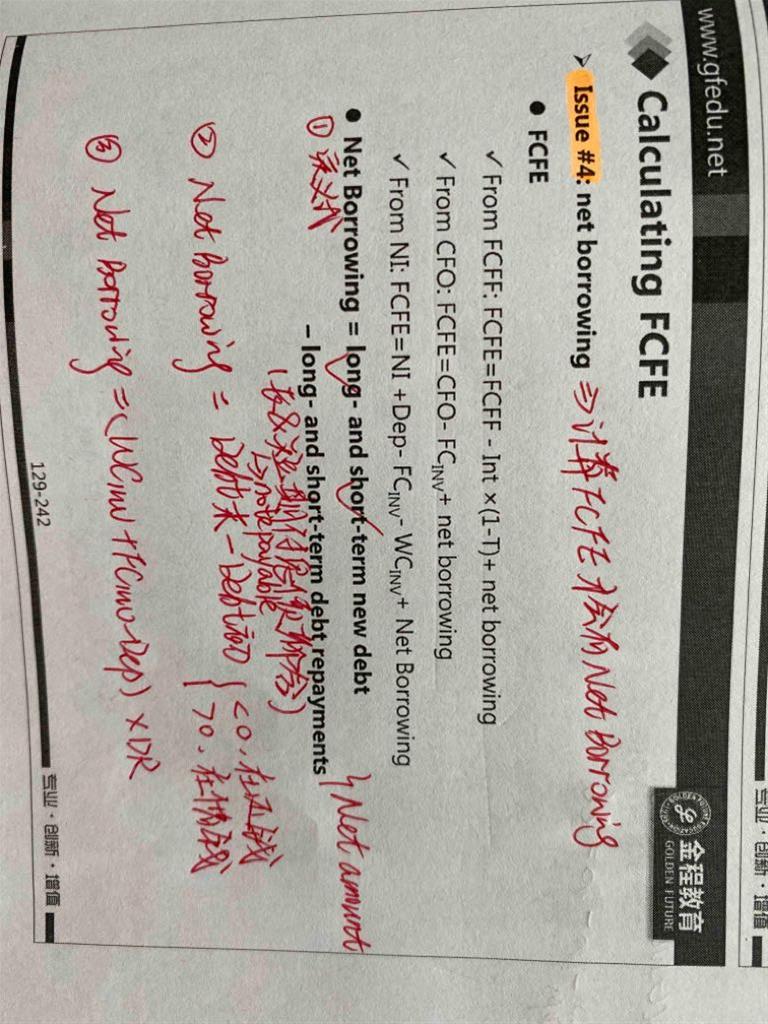 www.gfedu.net
Calculating FCFE
金程教育
GOLDEN FUTURE
➢ Issue #4: net borrowing ⇒ 计算FCFE才会有Net Borrowing
● FCFE
✓ From FCFF: FCFE=FCFF - Int ×(1-T)+ net borrowing
✓ From CFO: FCFE=CFO- FC_INV+ net borrowing
✓ From NI: FCFE=NI +Dep- FC_INV- WC_INV+ Net Borrowing
● Net Borrowing = long- and short-term new debt
– long- and short-term debt repayments
Net amount
① 定义式
↳ note payable
② Net Borrowing = Debt末 - Debt初 { <0, 在还钱
>0, 在借钱
③ Net Borrowing = (WCinv + FCinv - Dep) × DR
129-242
专业·创新·增值
专业·创新·增值